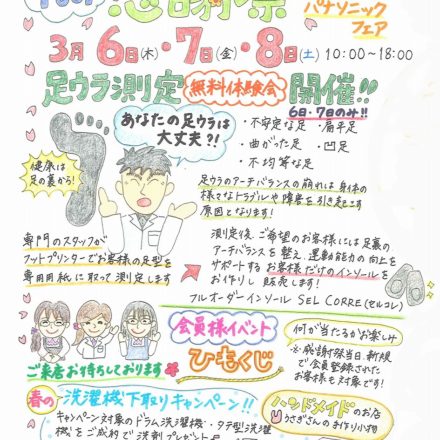 感謝祭
パナソニック
フェア
3月6日(木)・7日(金)・8日(土) 10:00~18:00
足ウラ測定 無料体験会 開催!!
6日・7日のみ!!
あなたの足ウラは
大丈夫?!
・不安定な足 ・扁平足
・曲がった足 ・凹足
・不均等な足
健康は
足の裏から!
足ウラのアーチバランスの崩れは身体の
様々なトラブルや障害を引き起こす
原因となります!
専門のスタッフが
フットプリンターでお客様の足型を
専用用紙に取って測定します
測定後、ご希望のお客様には足裏の
アーチバランスを整え、運動能力の向上を
サポートするお客様だけのインソールを
お作りし販売します!
フルオーダーインソール SEL CORRE(セルコレ)
会員様イベント
ひもくじ
何が当たるかお楽しみ
※感謝祭当日、新規
で会員登録された
お客様も対象です!
ご来店お待ちしております
春の洗濯機下取りキャンペーン!!
キャンペーン対象のドラム洗濯機・タテ型洗濯
機をご成約で洗剤プレゼント
ハンドメイドのお店
うさぎさんのお作り小物